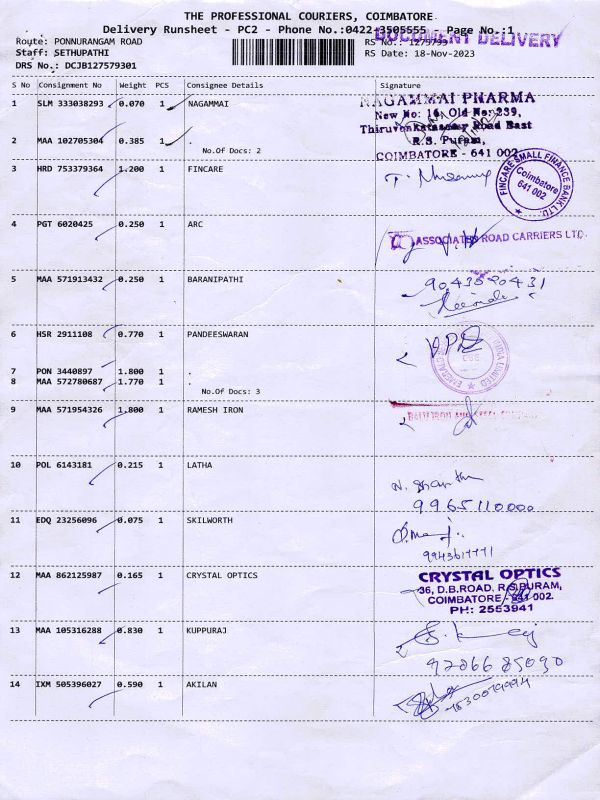 THE PROFESSIONAL COURIERS, COIMBATORE
Delivery Runsheet - PC2 - Phone No.:0422-3505555 Page No.:1
DOCUMENT DELIVERY
Route: PONNURANGAM ROAD
RS No.: 1279793
Staff: SETHUPATHI
RS Date: 18-Nov-2023
DRS No.: DCJB127579301
S No Consignment No Weight PCS Consignee Details Signature
1 SLM 333038293 0.070 1 NAGAMMAI
NAGAMMAI PHARMA
New No: 16, Old No: 239,
Thiruvenkatasamy Road East
R.S. Puram,
COIMBATORE - 641 002
2 MAA 102705304 0.385 1 .
No.Of Docs: 2
3 HRD 753379364 1.200 1 FINCARE
FINCARE SMALL FINANCE BANK LTD.
Coimbatore
641 002
4 PGT 6020425 0.250 1 ARC
ASSOCIATED ROAD CARRIERS LTD.
5 MAA 571913432 0.250 1 BARANIPATHI
9043520431
6 HSR 2911108 0.770 1 PANDEESWARAN
7 PON 3440897 1.800 1 .
8 MAA 572780687 1.770 1 .
No.Of Docs: 3
9 MAA 571954326 1.800 1 RAMESH IRON
10 POL 6143181 0.215 1 LATHA
N. Shanthi
9965110000
11 EDQ 23256096 0.075 1 SKILWORTH
9943617771
12 MAA 862125987 0.165 1 CRYSTAL OPTICS
CRYSTAL OPTICS
36, D.B.ROAD, R.S.PURAM,
COIMBATORE - 641 002.
PH: 2553941
13 MAA 105316288 0.830 1 KUPPURAJ
14 IXM 505396027 0.590 1 AKILAN